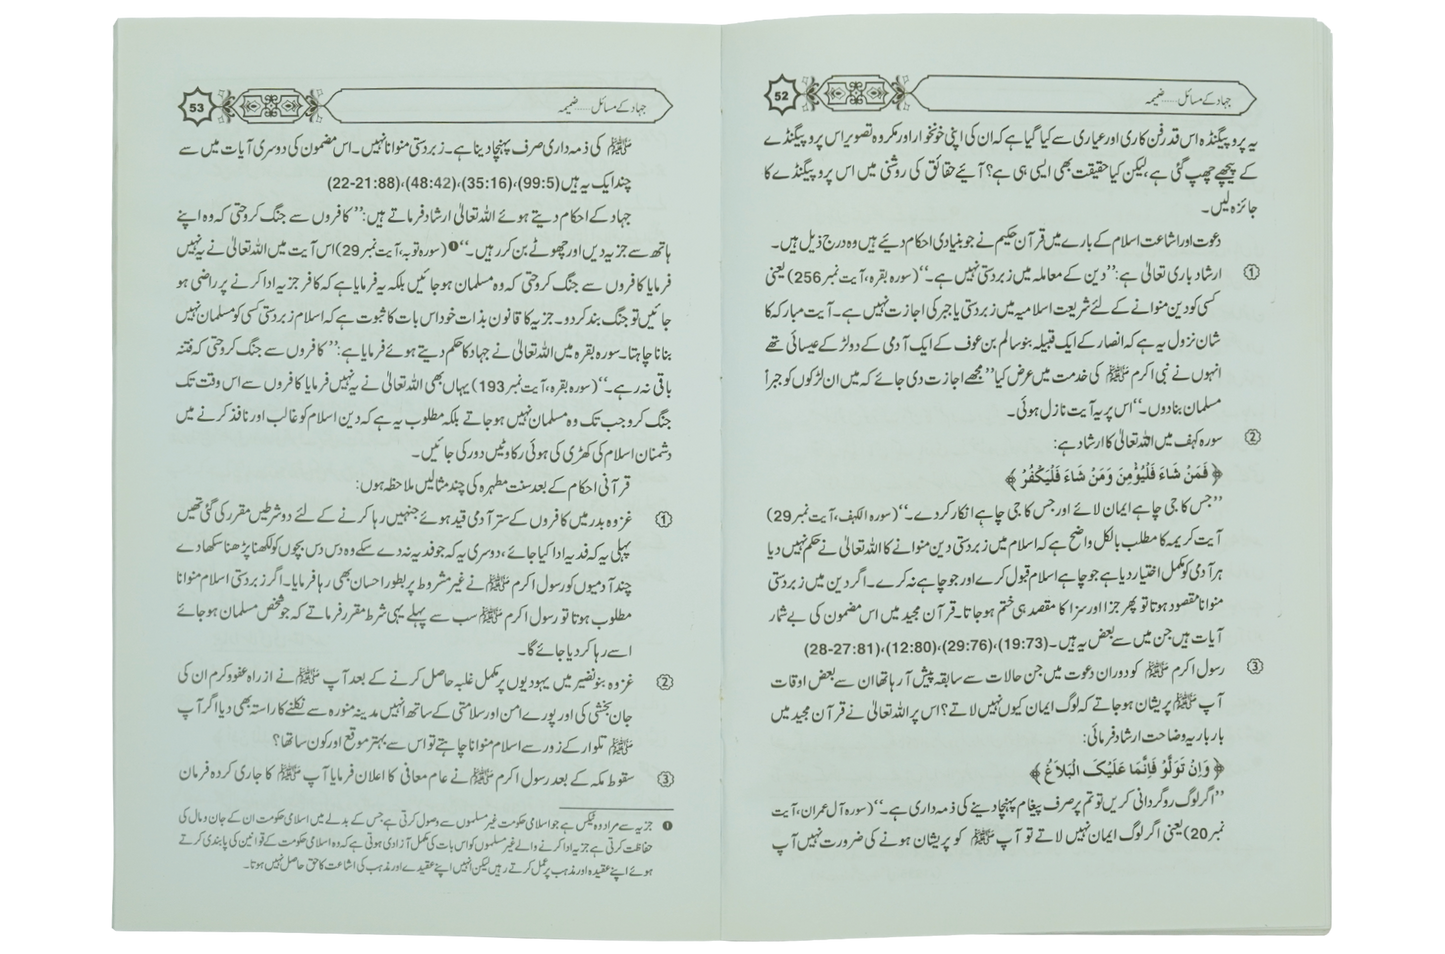 جہاد کے مسائل..... ضمیمہ
52
یہ پروپیگنڈہ اس قدر فن کاری اور عیاری سے کیا گیا ہے کہ ان کی اپنی خونخوار اور مکروہ تصویر اس پروپیگنڈے
کے پیچھے چھپ گئی ہے، لیکن کیا حقیقت بھی ایسی ہی ہے؟ آئیے حقائق کی روشنی میں اس پروپیگنڈے کا
جائزہ لیں۔
دعوت اور اشاعت اسلام کے بارے میں قرآن حکیم نے جو بنیادی احکام دیئے ہیں وہ درج ذیل ہیں۔
① ارشاد باری تعالیٰ ہے: ’’دین کے معاملہ میں زبردستی نہیں ہے۔‘‘ (سورہ بقرہ، آیت نمبر 256) یعنی
کسی کو دین منوانے کے لئے شریعت اسلامیہ میں زبردستی یا جبر کی اجازت نہیں ہے۔ آیت مبارکہ کا
شان نزول یہ ہے کہ انصار کے ایک قبیلہ بنو سالم بن عوف کے ایک آدمی کے دو لڑکے عیسائی تھے
انہوں نے نبی اکرم ﷺ کی خدمت میں عرض کیا ’’مجھے اجازت دی جائے کہ میں ان لڑکوں کو جبراً
مسلمان بنا دوں۔‘‘ اس پر یہ آیت نازل ہوئی۔
② سورہ کہف میں اللہ تعالیٰ کا ارشاد ہے:
﴿ فَمَنْ شَاءَ فَلْيُؤْمِنْ وَمَنْ شَاءَ فَلْيَكْفُرْ ﴾
’’جس کا جی چاہے ایمان لائے اور جس کا جی چاہے انکار کر دے۔‘‘ (سورہ الکہف، آیت نمبر 29)
آیت کریمہ کا مطلب بالکل واضح ہے کہ اسلام میں زبردستی دین منوانے کا اللہ تعالیٰ نے حکم نہیں دیا
ہر آدمی کو مکمل اختیار دیا ہے جو چاہے اسلام قبول کرے اور جو چاہے نہ کرے۔ اگر دین میں زبردستی
منوانا مقصود ہوتا تو پھر جزا اور سزا کا مقصد ہی ختم ہو جاتا۔ قرآن مجید میں اس مضمون کی بے شمار
آیات ہیں جن میں سے بعض یہ ہیں۔ (19:73)، (29:76)، (12:80)، (28-27:81)
③ رسول اکرم ﷺ کو دوران دعوت میں جن حالات سے سابقہ پیش آ رہا تھا ان سے بعض اوقات
آپ ﷺ پریشان ہو جاتے کہ لوگ ایمان کیوں نہیں لاتے؟ اس پر اللہ تعالیٰ نے قرآن مجید میں
بار بار یہ وضاحت ارشاد فرمائی:
﴿ وَاِنْ تَوَلَّوْ فَاِنَّمَا عَلَيْكَ الْبَلَاغُ ﴾
’’اگر لوگ روگردانی کریں تو تم پر صرف پیغام پہنچا دینے کی ذمہ داری ہے۔‘‘ (سورہ آل عمران، آیت
نمبر 20) یعنی اگر لوگ ایمان نہیں لاتے تو آپ ﷺ کو پریشان ہونے کی ضرورت نہیں آپ
جہاد کے مسائل..... ضمیمہ
53
ﷺ کی ذمہ داری صرف پہنچا دینا ہے۔ زبردستی منوانا نہیں۔ اس مضمون کی دوسری آیات میں سے
چند ایک یہ ہیں (99:5)، (35:16)، (48:42)، (22-21:88)
جہاد کے احکام دیتے ہوئے اللہ تعالیٰ ارشاد فرماتے ہیں: ’’کافروں سے جنگ کرو حتی کہ وہ اپنے
ہاتھ سے جزیہ دیں اور چھوٹے بن کر رہیں۔‘‘❶ (سورہ توبہ، آیت نمبر 29) اس آیت میں اللہ تعالیٰ نے یہ نہیں
فرمایا کافروں سے جنگ کرو حتی کہ وہ مسلمان ہو جائیں بلکہ یہ فرمایا ہے کہ کافر جزیہ ادا کرنے پر راضی ہو
جائیں تو جنگ بند کر دو۔ جزیہ کا قانون بذات خود اس بات کا ثبوت ہے کہ اسلام زبردستی کسی کو مسلمان نہیں
بنانا چاہتا۔ سورہ بقرہ میں اللہ تعالیٰ نے جہاد کا حکم دیتے ہوئے فرمایا ہے: ’’کافروں سے جنگ کرو حتی کہ فتنہ
باقی نہ رہے۔‘‘ (سورہ بقرہ، آیت نمبر 193) یہاں بھی اللہ تعالیٰ نے یہ نہیں فرمایا کافروں سے اس وقت تک
جنگ کرو جب تک وہ مسلمان نہیں ہو جاتے بلکہ مطلوب یہ ہے کہ دین اسلام کو غالب اور نافذ کرنے میں
دشمنان اسلام کی کھڑی کی ہوئی رکاوٹیں دور کی جائیں۔
قرآنی احکام کے بعد سنت مطہرہ کی چند مثالیں ملاحظہ ہوں:
① غزوہ بدر میں کافروں کے ستر آدمی قید ہوئے جنہیں رہا کرنے کے لئے دو شرطیں مقرر کی گئی تھیں
پہلی یہ کہ فدیہ ادا کیا جائے، دوسری یہ کہ جو فدیہ نہ دے سکے وہ دس دس بچوں کو لکھنا پڑھنا سکھا دے
چند آدمیوں کو رسول اکرم ﷺ نے غیر مشروط پر بطور احسان بھی رہا فرمایا۔ اگر زبردستی اسلام منوانا
مطلوب ہوتا تو رسول اکرم ﷺ سب سے پہلے یہی شرط مقرر فرماتے کہ جو شخص مسلمان ہو جائے
اسے رہا کر دیا جائے گا۔
② غزوہ بنو نضیر میں یہودیوں پر مکمل غلبہ حاصل کرنے کے بعد آپ ﷺ نے از راہ عفو و کرم ان کی
جان بخشی کی اور پورے امن اور سلامتی کے ساتھ انہیں مدینہ منورہ سے نکلنے کا راستہ بھی دیا اگر آپ
ﷺ تلوار کے زور سے اسلام منوانا چاہتے تو اس سے بہتر موقع اور کون سا تھا؟
③ سقوط مکہ کے بعد رسول اکرم ﷺ نے عام معافی کا اعلان فرمایا آپ ﷺ کا جاری کردہ فرمان
❶ جزیہ سے مراد وہ ٹیکس ہے جو اسلامی حکومت غیر مسلموں سے وصول کرتی ہے جس کے بدلے میں اسلامی حکومت ان کے جان و مال کی
حفاظت کرتی ہے جزیہ ادا کرنے والے غیر مسلموں کو اس بات کی مکمل آزادی ہوتی ہے کہ وہ اسلامی حکومت کے قوانین کی پابندی کرتے
ہوئے اپنے عقیدہ اور مذہب پر عمل کرتے رہیں لیکن انہیں اپنے عقیدے اور مذہب کی اشاعت کا حق حاصل نہیں ہوتا۔